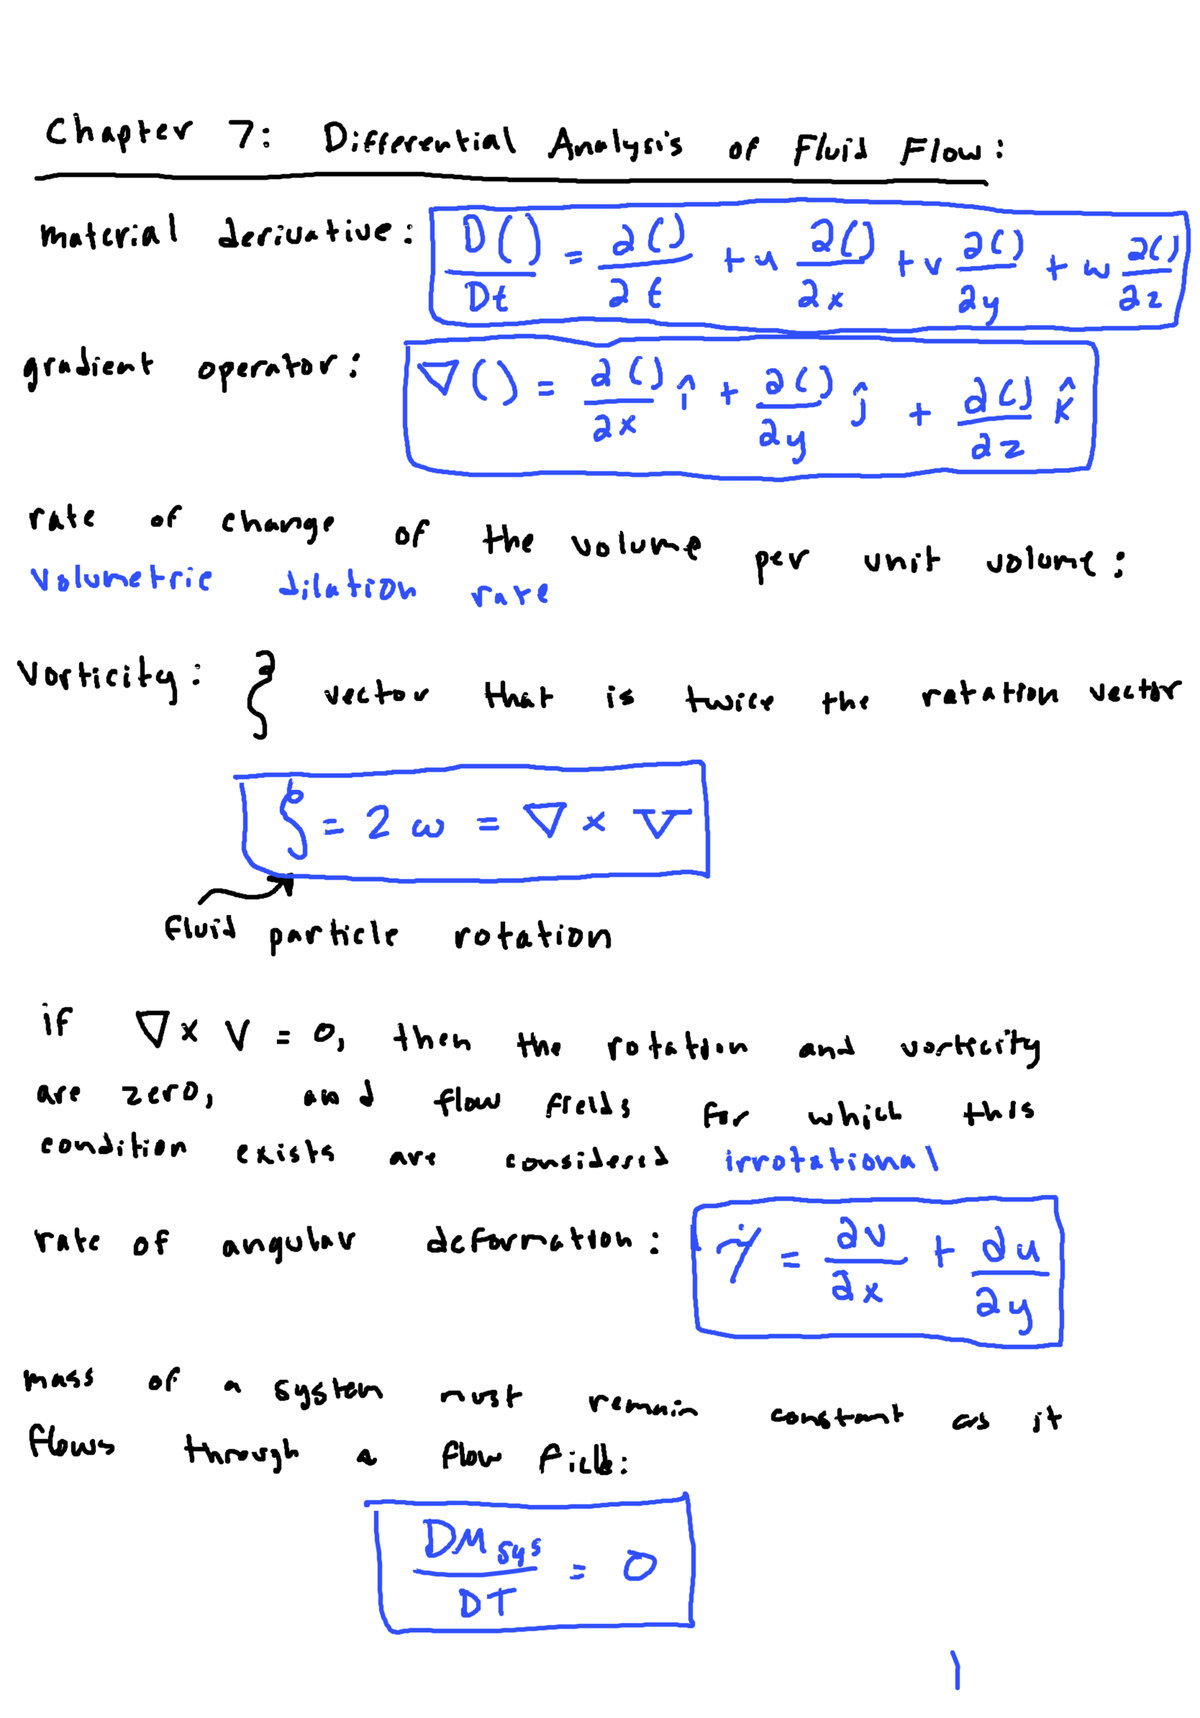 Chapter 7: Differential Analysis of Fluid Flow:
material derivative: D()/Dt = ∂()/∂t + u ∂()/∂x + v ∂()/∂y + w ∂()/∂z
gradient operator: ∇() = ∂()/∂x î + ∂()/∂y ĵ + ∂()/∂z k̂
rate of change of the volume per unit volume:
volumetric dilation rate
Vorticity: ζ vector that is twice the rotation vector
ζ = 2 ω = ∇ × V
fluid particle rotation
if ∇ × V = 0, then the rotation and vorticity
are zero, and flow fields for which this
condition exists are considered irrotational
rate of angular deformation: γ̇ = ∂v/∂x + ∂u/∂y
mass of a system must remain constant as it
flows through a flow field:
DM sys/DT = 0
1